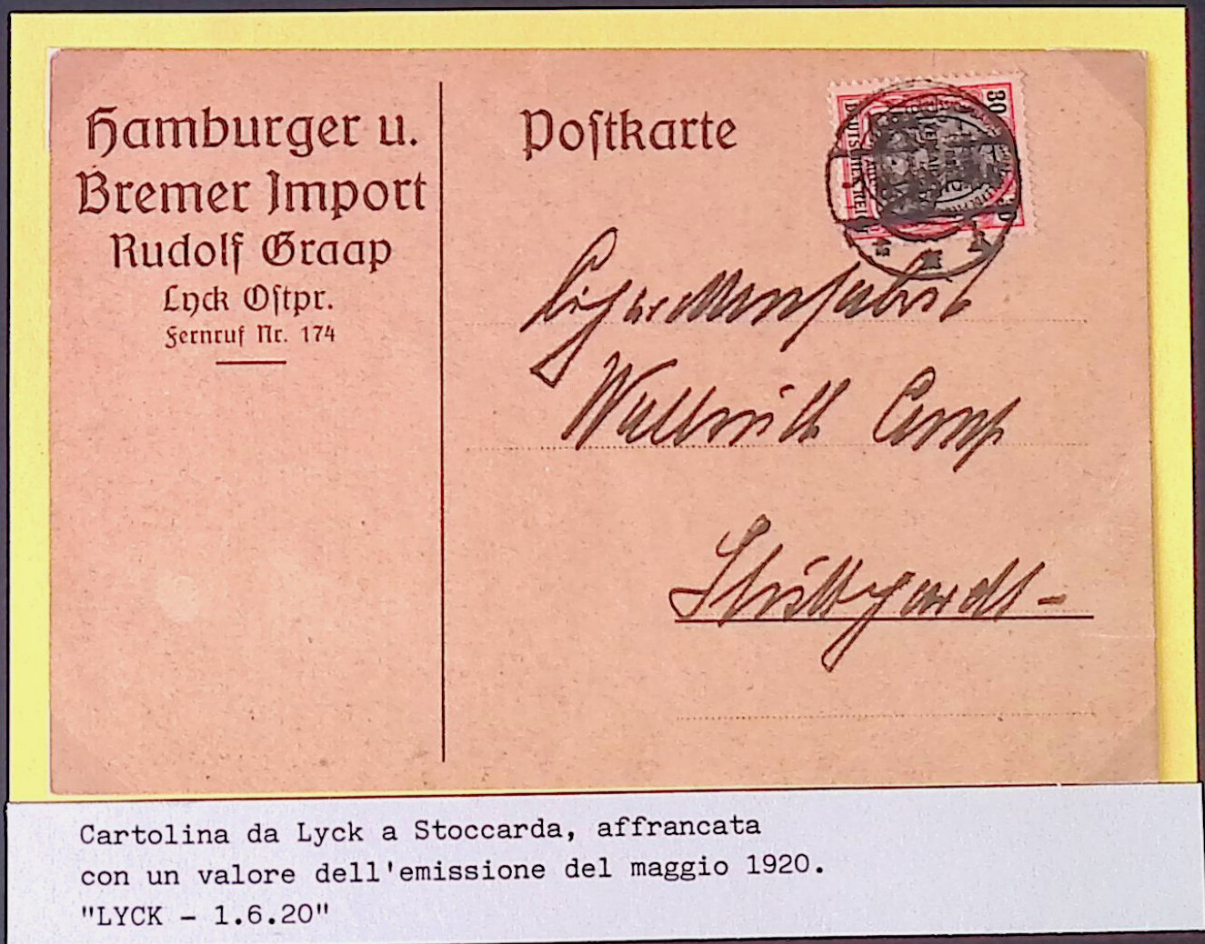 Hamburger u.
Bremer Import
Rudolf Graap
Lyck Ostpr.
Fernruf Nr. 174
Postkarte
30
DEUTSCHES REICH
Cigarettenfabrik
Stuttgardt-
Cartolina da Lyck a Stoccarda, affrancata
con un valore dell'emissione del maggio 1920.
"LYCK - 1.6.20"